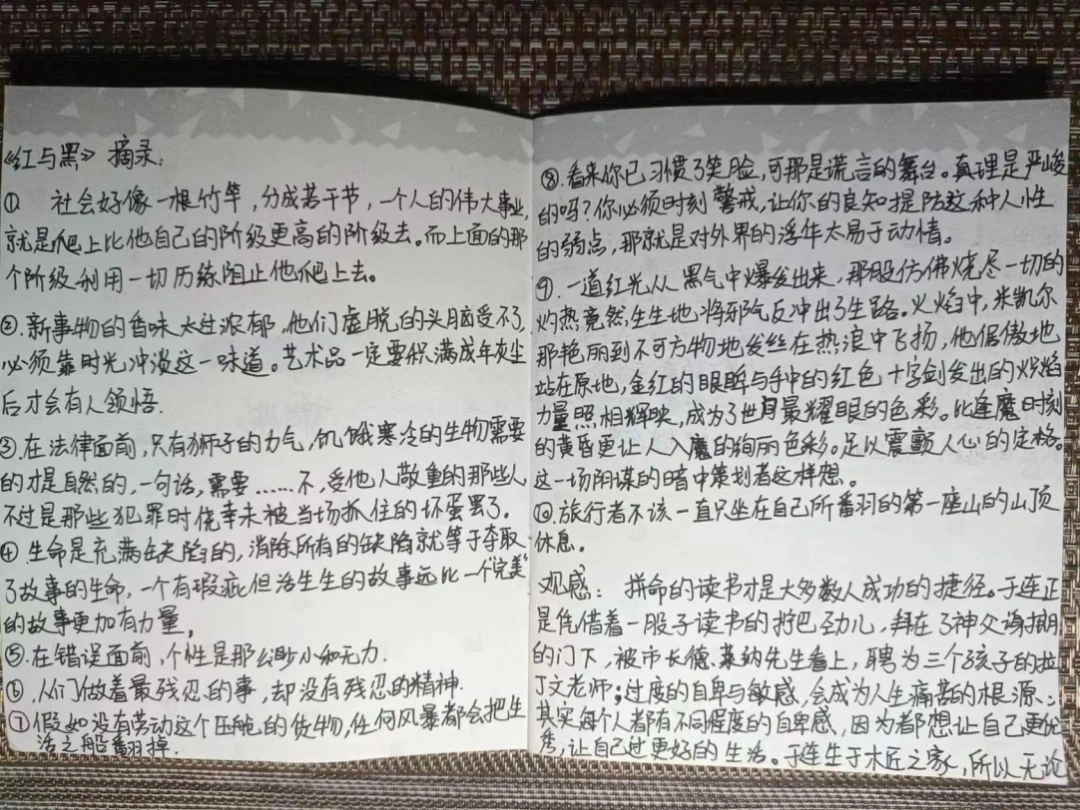 《红与黑》摘录：
① 社会好像一根竹竿，分成若干节，一个人的伟大事业，
就是爬上比他自己的阶级更高的阶级去。而上面的那
个阶级利用一切历练阻止他爬上去。
②.新事物的香味太过浓郁，他们虚脱的头脑受不了，
必须靠时光冲淡这一味道。艺术品一定要积满成年灰尘
后才会有人领悟.
③.在法律面前，只有狮子的力气，饥饿寒冷的生物需要
的才是自然的，一句话，需要……不，受他人敬重的那些人
不过是那些犯罪时侥幸未被当场抓住的坏蛋罢了。
④.生命是充满缺陷的，消除所有的缺陷就等于夺取
了故事的生命，一个有瑕疵但活生生的故事远比一个"完美"
的故事更加有力量,
⑤.在错误面前，个性是那么渺小和无力.
⑥.人们做着最残忍的事，却没有残忍的精神.
⑦假如没有劳动这个压舱的货物，任何风暴都会把生
活之船翻掉.
⑧.看来你已习惯了笑脸，可那是谎言的舞台。真理是严峻
的吗？你必须时刻警戒，让你的良知提防这种人性
的弱点，那就是对外界的浮华太易于动情。
⑨.一道红光从黑气中爆发出来，那股仿佛烧尽一切的
灼热竟然生生地将邪气反冲出了生路。火焰中，米凯尔
那艳丽到不可方物地发丝在热浪中飞扬，他倨傲地
站在原地，金红的眼眸与手中的红色十字剑发出的火焰
力量照相辉映，成为了世间最耀眼的色彩。比逢魔时刻
的黄昏更让人入魔的绚丽色彩。足以震颤人心的定格。
这一场阴谋的暗中策划者这样想。
⑩.旅行者不该一直只坐在自己所番羽的第一座山的山顶
休息。
观感： 拼命的读书才是大多数人成功的捷径。于连正
是凭借着一股子读书的拧巴劲儿，拜在了神父谢朗
的门下，被市长德.莱纳先生看上，聘为三个孩子的拉
丁文老师；过度的自卑与敏感，会成为人生痛苦的根源：
其实每个人都有不同程度的自卑感，因为都想让自己更优
秀，让自己过更好的生活。于连生于木匠之家，所以无论